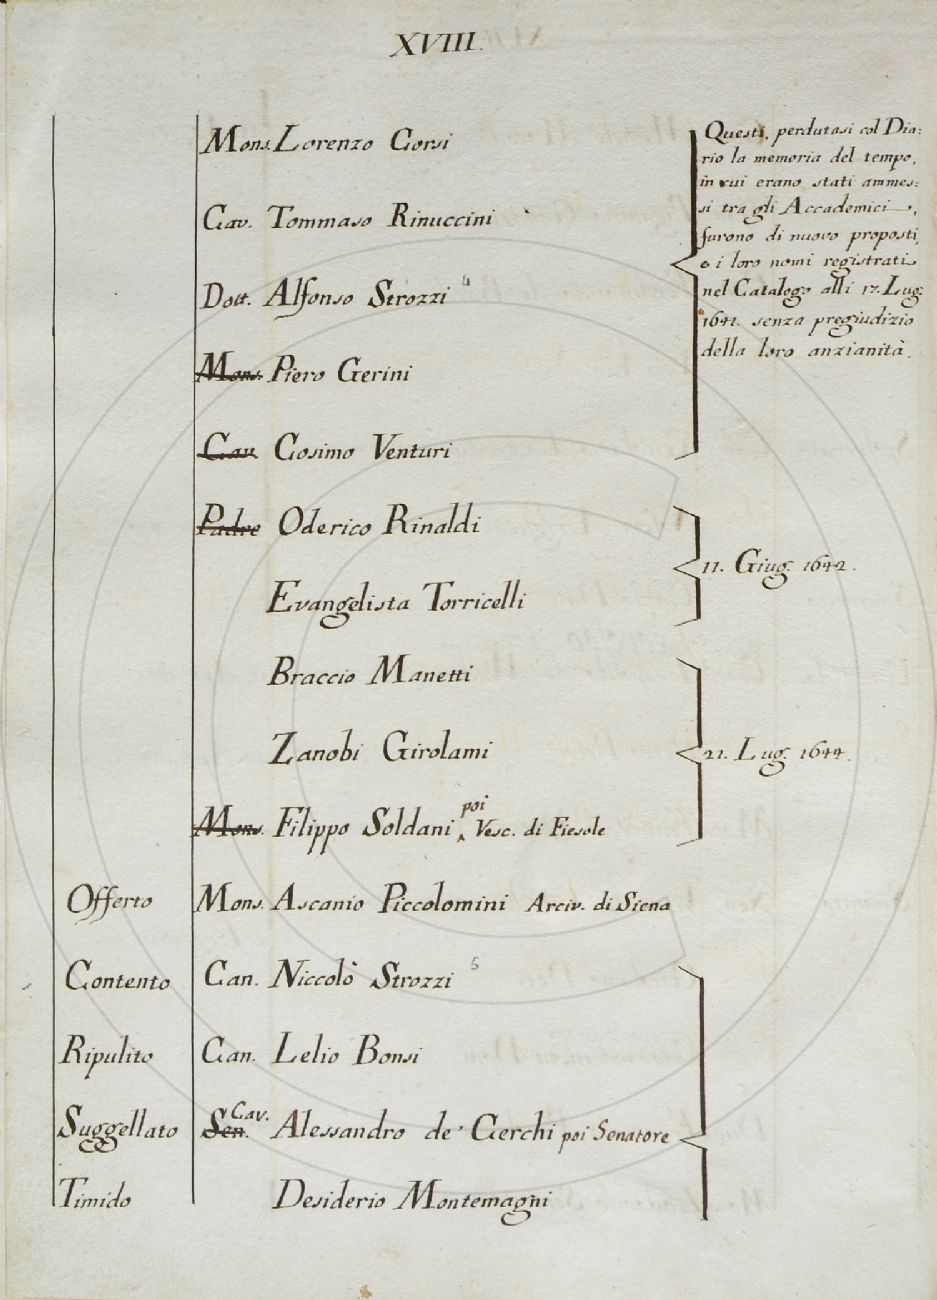 XVIII.
Mons. Lorenzo Corsi
Cav. Tommaso Rinuccini
Dott. Alfonso Strozzi 4
Mons. Piero Gerini
Cav. Cosimo Venturi
Questi, perdutasi col Dia:
rio la memoria del tempo,
in cui erano stati ammes:
si tra gli Accademici,
furono di nuovo proposti,
e i loro nomi registrati
nel Catalogo alli 17. Lug.
1641. senza pregiudizio
della loro anzianità.
Padre Oderico Rinaldi
Evangelista Torricelli
11. Giug. 1642.
Braccio Manetti
Zanobi Girolami
21. Lug. 1644.
poi
Mons. Filippo Soldani ^ Vesc. di Fiesole
Offerto Mons. Ascanio Piccolomini Arciv. di Siena
Contento Can. Niccolò Strozzi 5
Ripulito Can. Lelio Bonsi
Cav.
Suggellato Sen. Alessandro de' Cerchi poi Senatore
Timido Desiderio Montemagni